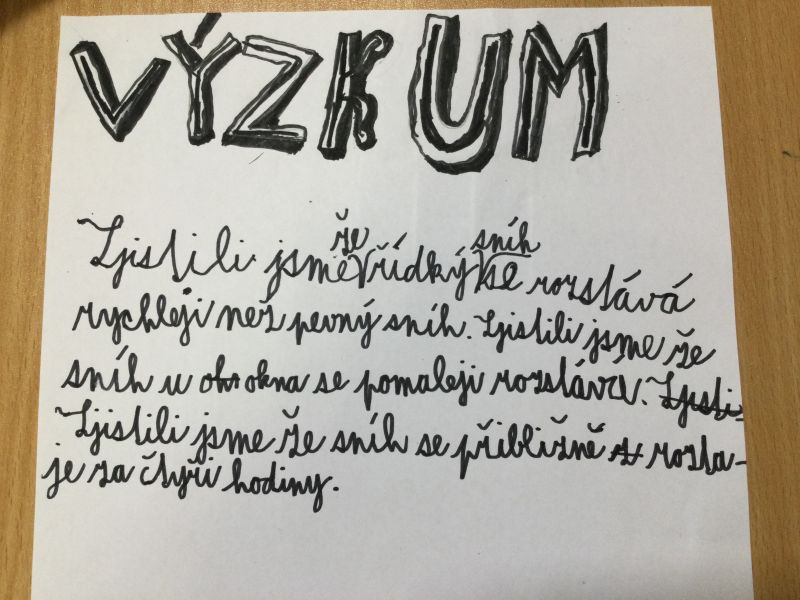 VÝZKUM
Zjistili jsme že řídký sníh se rozstává
rychleji než pevný sníh. Zjistili jsme že
sníh u okna se pomaleji rozstává. Zjisti
Zjistili jsme že sníh se přibližně rozta-
je za čtyři hodiny.